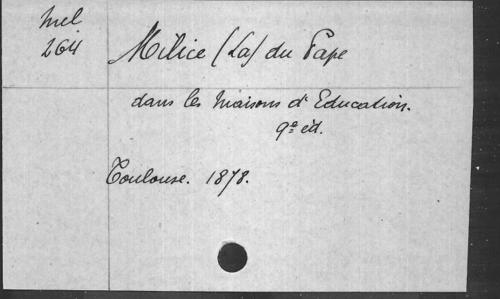 Mel
264
Milice (La) du Pape
dans les Maisons d'Education.
9e éd.
Toulouse. 1878.